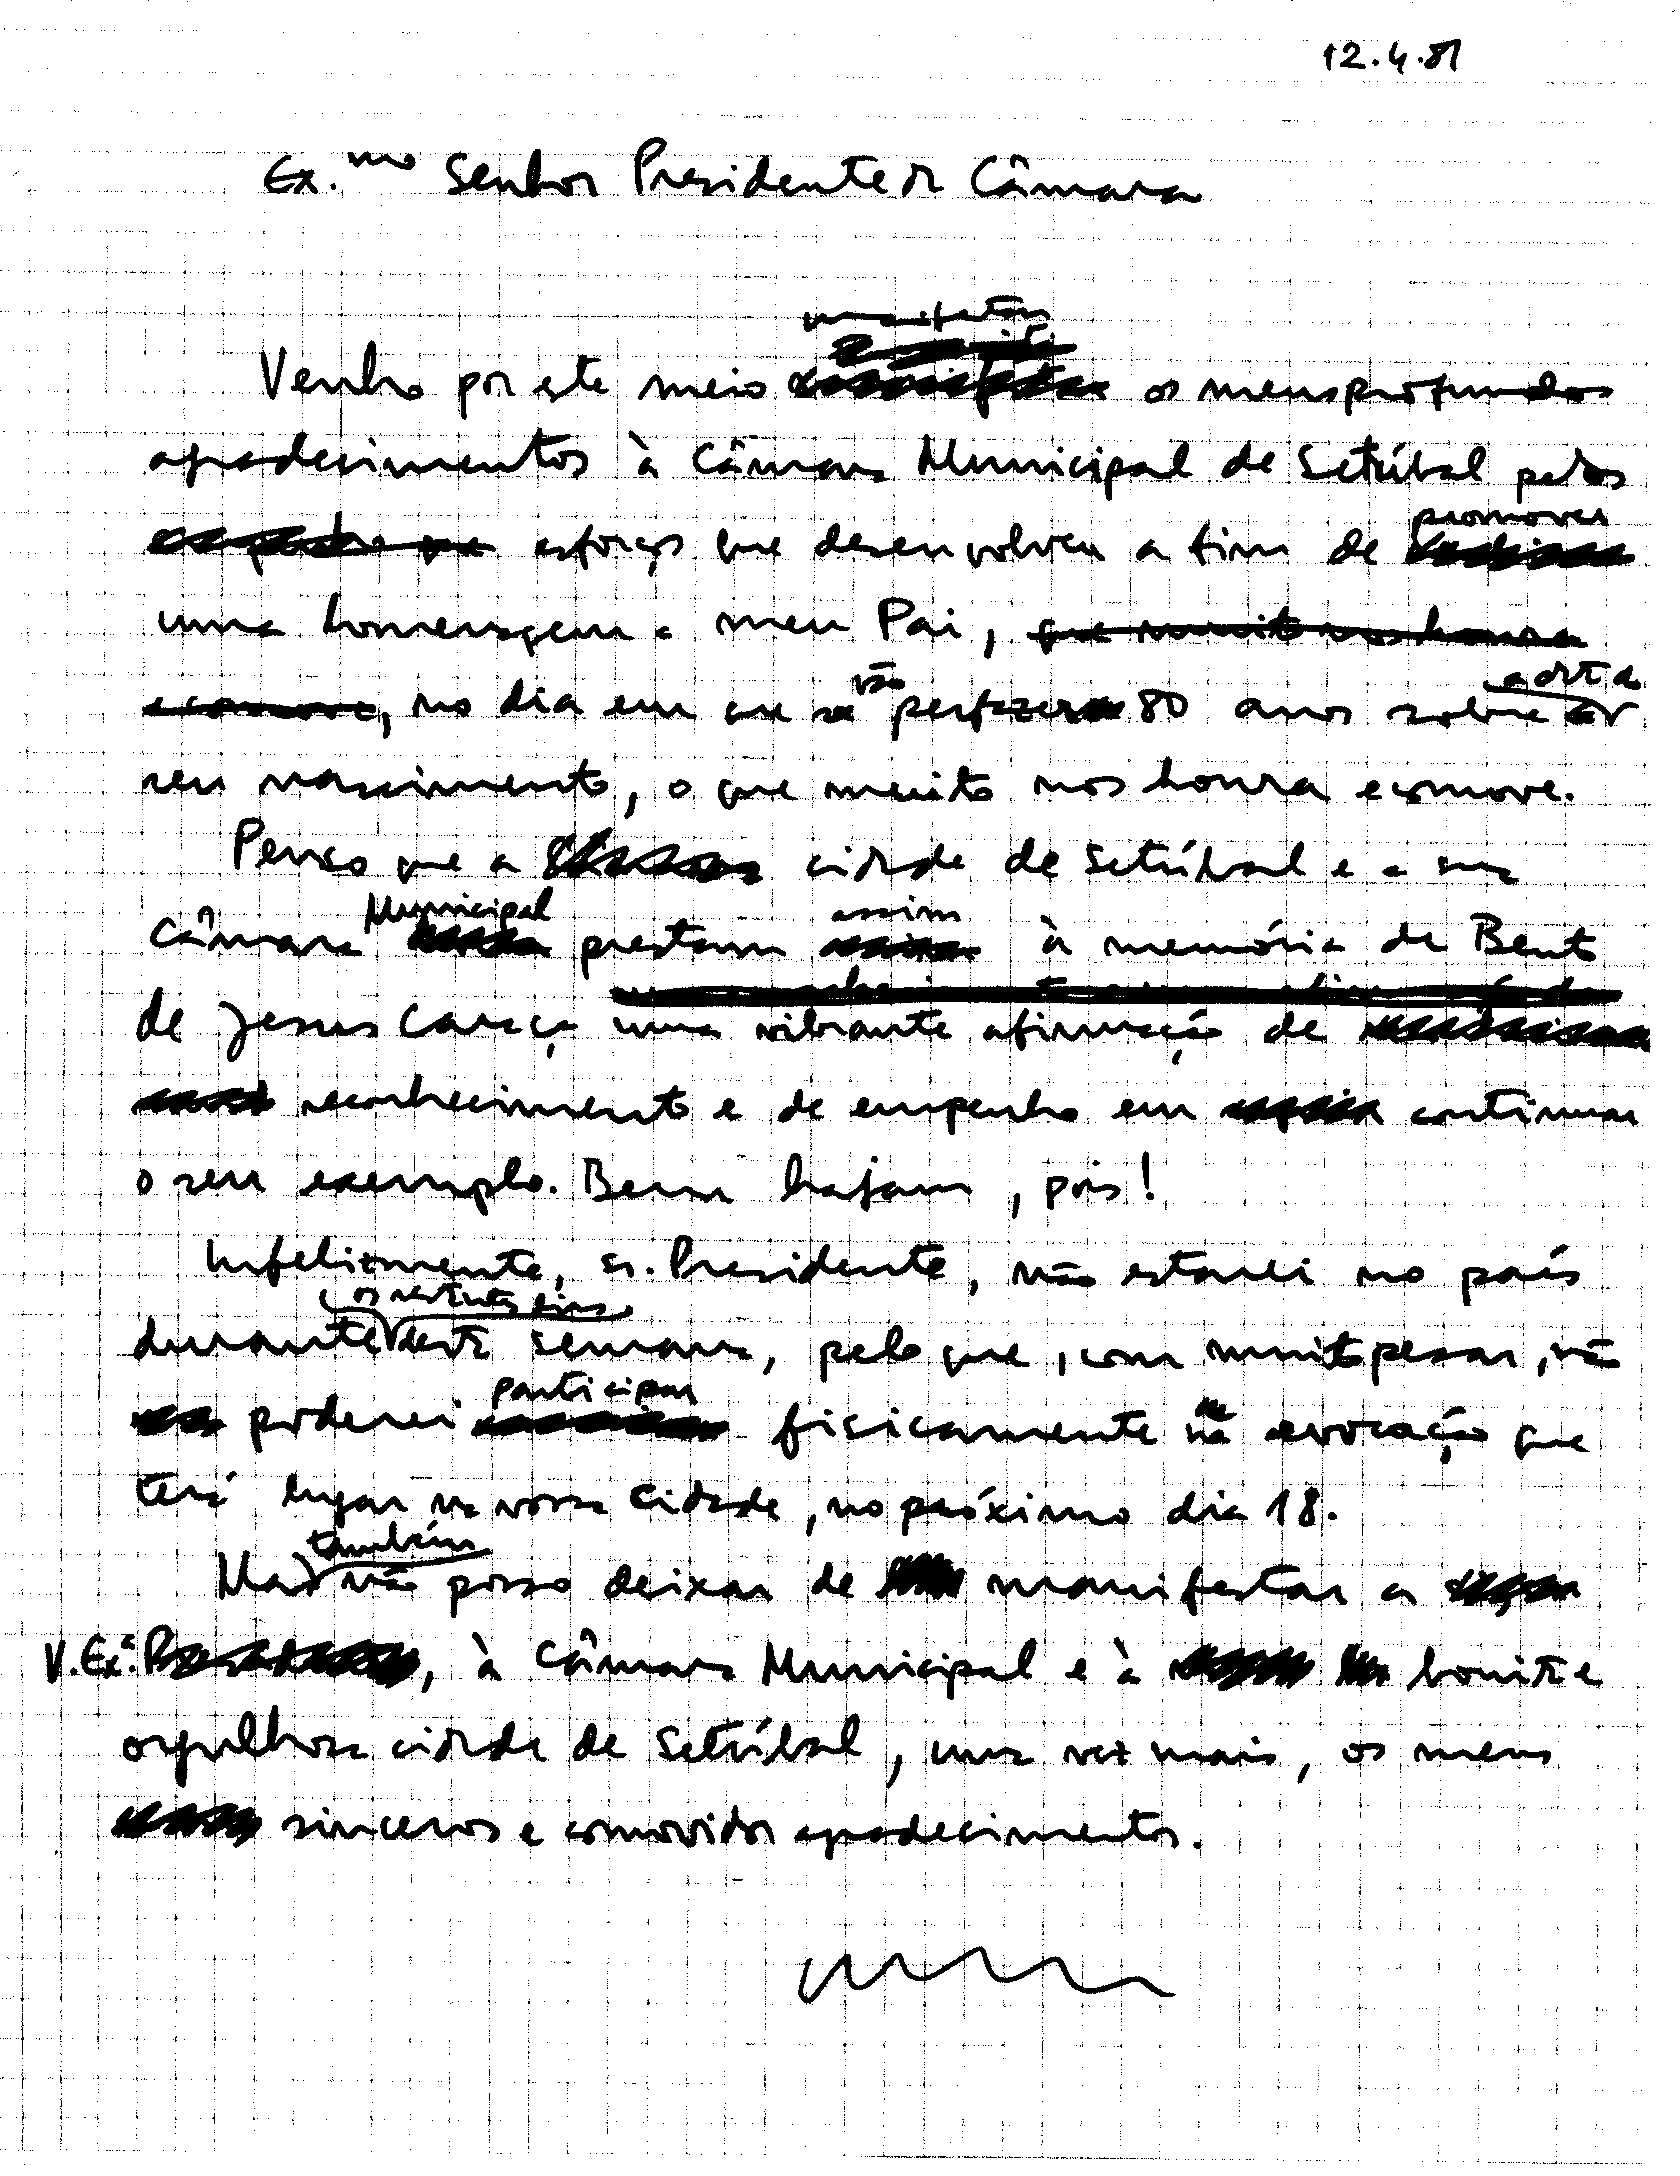 12.4.81
Ex.mo Senhor Presidente da Câmara
manifestar
Venho por este meio os meus profundos
agradecimentos à Câmara Municipal de Setúbal pelos
promover
esforços que desenvolveu a fim de
uma homenagem a meu Pai, que muito nos honra
vão a data do
e comove, no dia em que se perfazer 80 anos sobre
seu nascimento, o que muito nos honra e comove.
Penso que a cidade de Setúbal e a sua
Municipal assim
Câmara prestam à memória de Bento
de Jesus Caraça uma vibrante afirmação de
reconhecimento e de empenho em continuar
o seu exemplo. Bem hajam, pois!
Infelizmente, Sr. Presidente, não estarei no país
os restantes dias
durante desta semana, pelo que, com muito pesar, não
participar
poderei fisicamente na evocação que
terá lugar na vossa cidade, no próximo dia 18.
também
Mas não posso deixar de manifestar a
V. Ex.ª, à Câmara Municipal e à bonita e
orgulhosa cidade de Setúbal, uma vez mais, os meus
sinceros e comovidos agradecimentos.